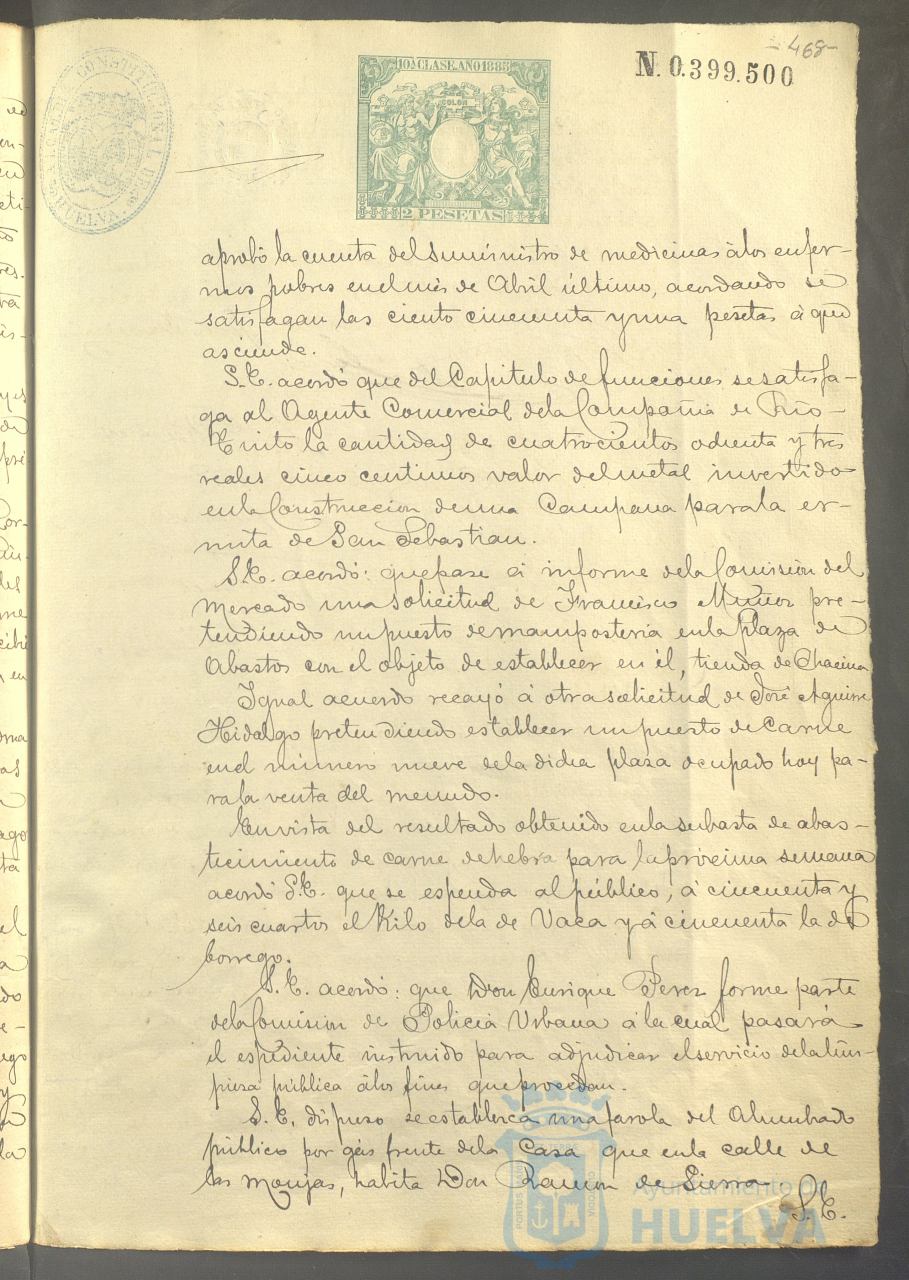 -468-
N. 0.399.500
10ª CLASE. AÑO 1885
COLON
2 PESETAS
ALCALDIA CONSTITUCIONAL DE HUELVA
aprobó la cuenta del suministro de medicinas á los enfer-
mos pobres en el mes de Abril último, acordando se
satisfagan las ciento cincuenta y una pesetas á que
asciende.
S.E. acordó que del Capitulo de funciones se satisfa-
ga al Agente Comercial de la Compañia de Rio-
Tinto la cantidad de cuatrocientos ochenta y tres
reales cinco centimos valor del metal invertido
en la Construccion de una Campana para la er-
mita de San Sebastian.
S.E. acordó: que pase á informe de la Comision del
Mercado una solicitud de Francisco Muñoz pre-
tendiendo un puesto de mamposteria en la Plaza de
Abastos con el objeto de establecer en él, tienda de Chacina
Igual acuerdo recayó á otra solicitud de José Aguirre
Hidalgo pretendiendo establecer un puesto de Carne
en el número nueve de la dicha plaza ocupado hoy pa-
ra la venta del menudo.
En vista del resultado obtenido en la subasta de abas-
tecimiento de carne de hebra para la prócima semana
acordó S.E. que se espenda al público, á cincuenta y
seis cuartos el Kilo de la de Vaca y á cincuenta la de
borrego.
S.E. acordó: que Don Enrique Perez forme parte
de la Comision de Policia Urbana á la cual pasará
el espediente instruido para adjudicar el servicio de la lim-
pieza pública á los fines que procedan.
S.E. dispuso se establezca una farola del Alumbrado
público por gas frente de la Casa que en la calle de
las Monjas, habita Don Ramon de Sierra.
S.E.
Ayuntamiento de
HUELVA